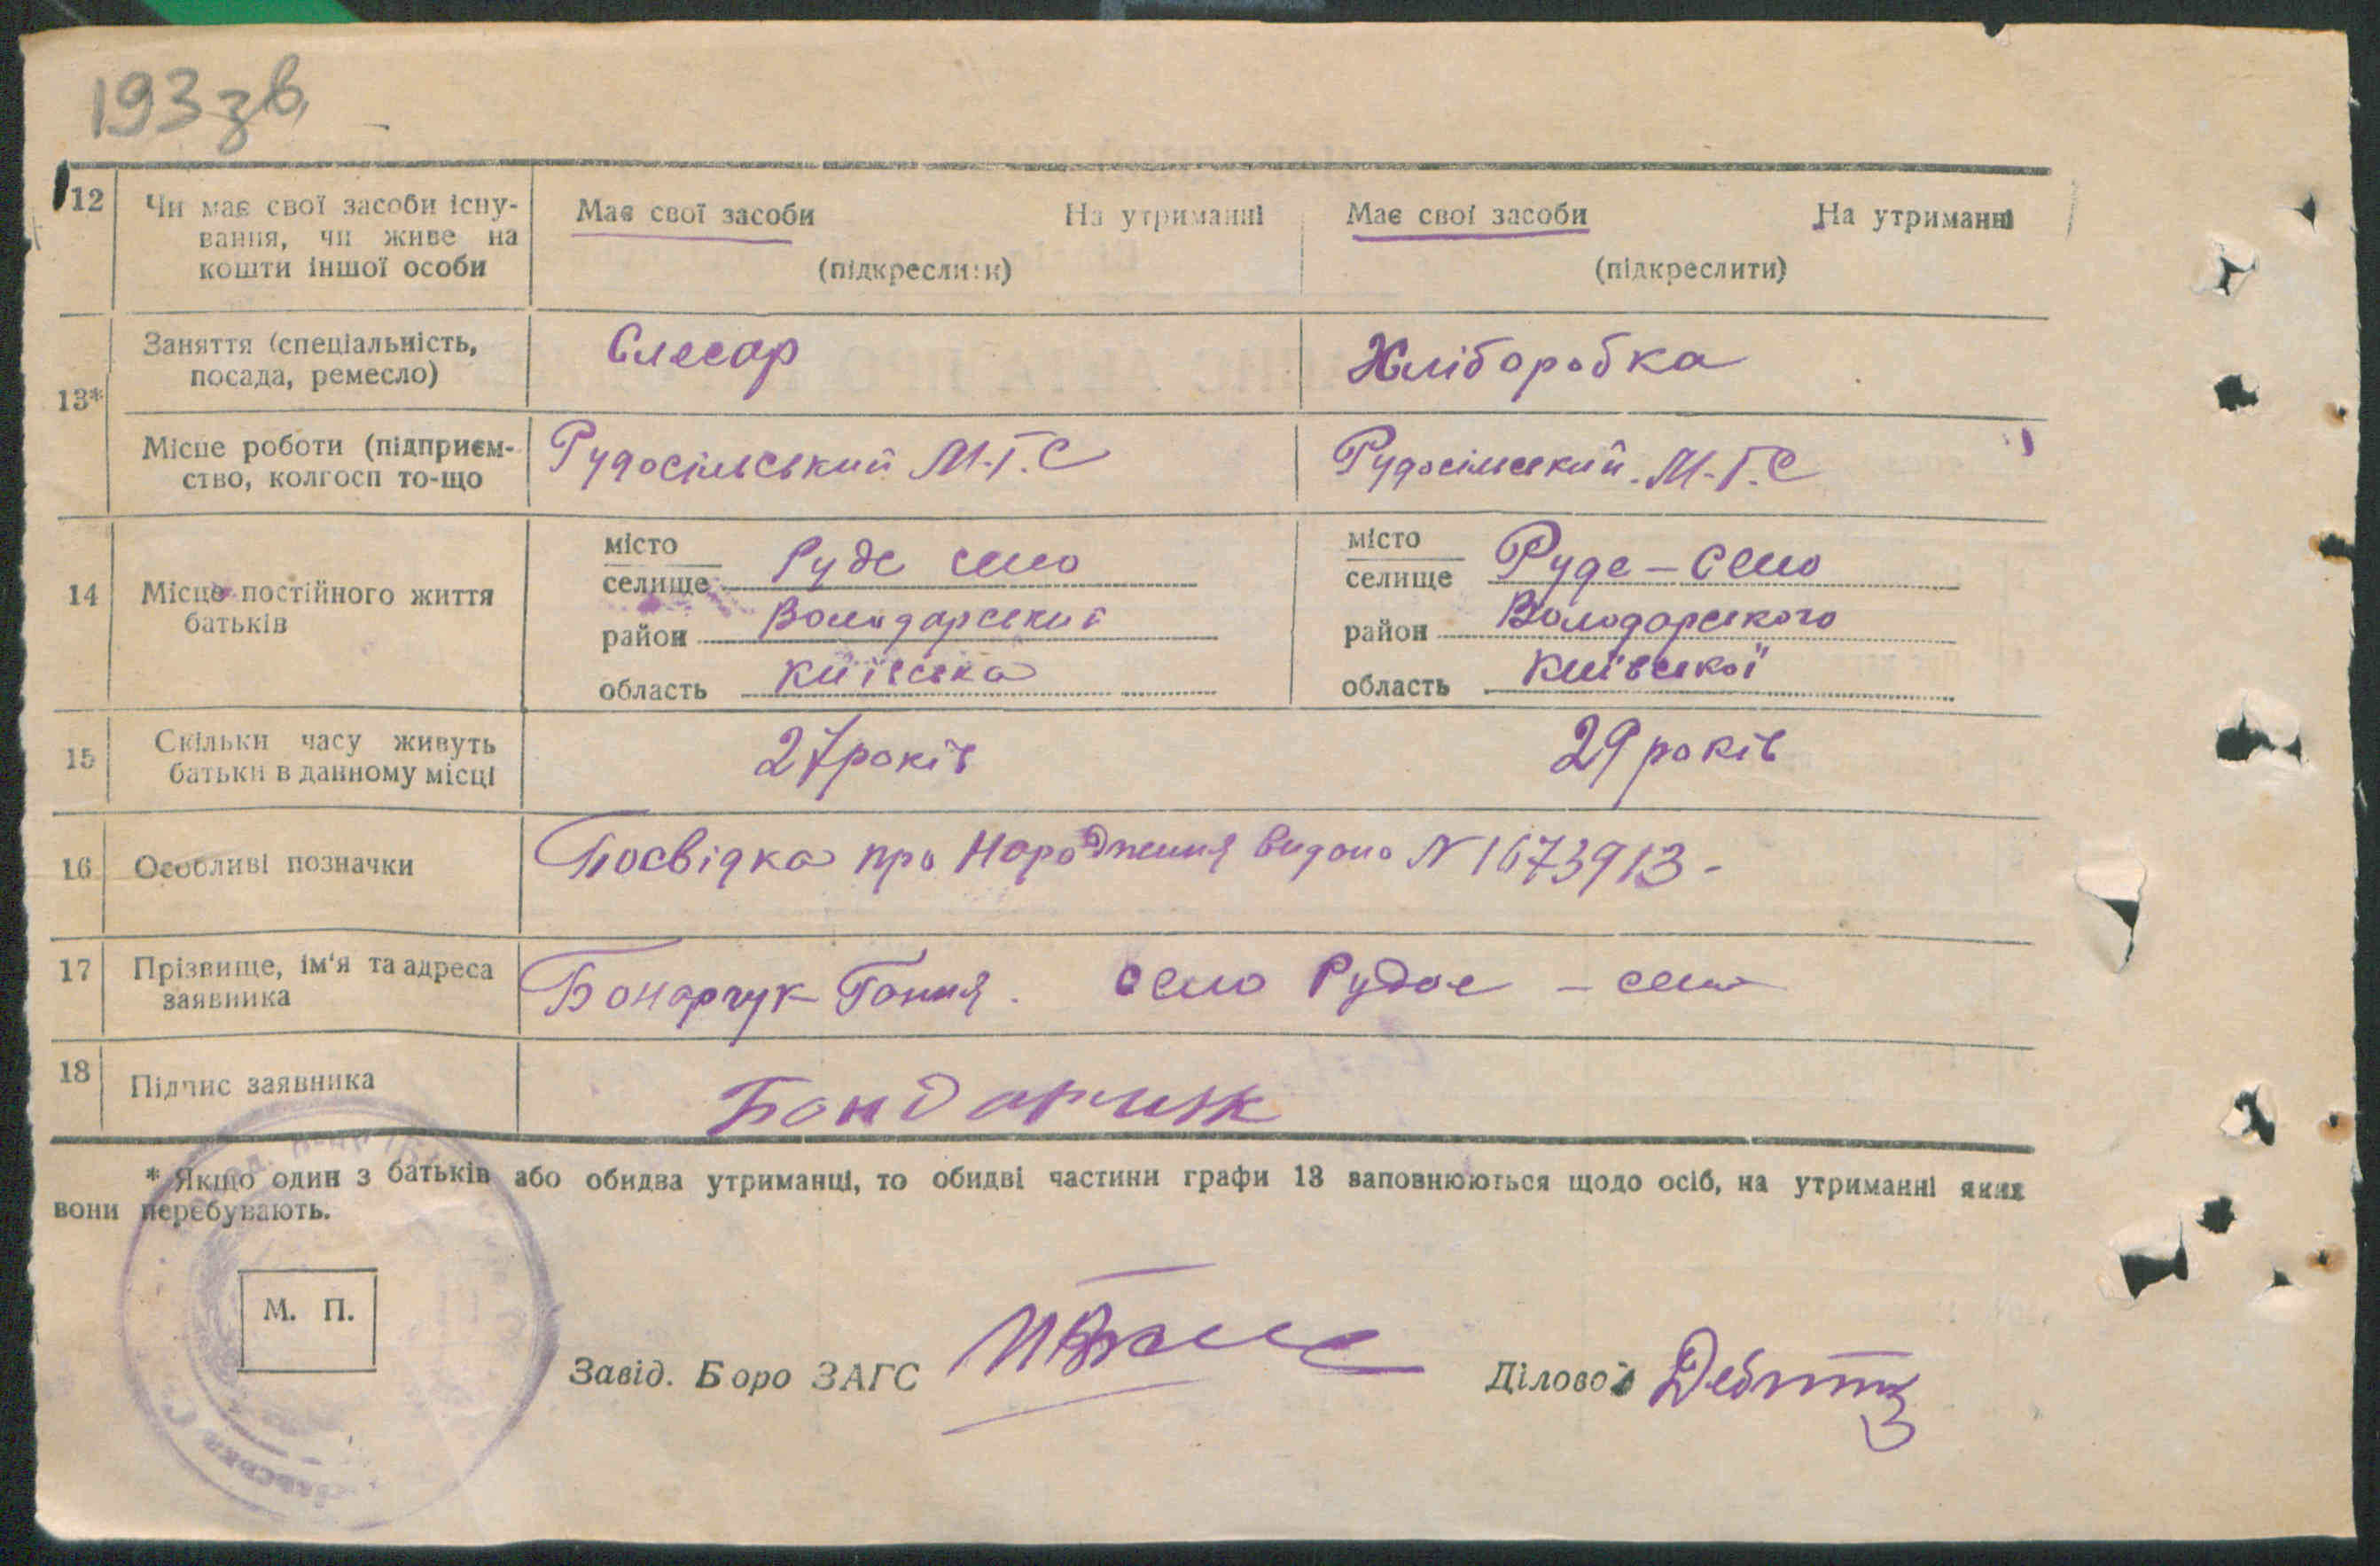 193 зв.
12 Чи має свої засоби існу- Має свої засоби На утриманні Має свої засоби На утриманні
вання, чи живе на
кошти іншої особи (підкреслити) (підкреслити)
Заняття (спеціальність, Слесар Хліборобка
посада, ремесло)
13*
Місце роботи (підприєм- Рудосільський М.Т.С Рудосільский М.Т.С
ство, колгосп то-що
місто місто
селище Руде село селище Руде – село
14 Місце постійного життя
батьків
район Володарський район Володарского
область київська область Київської
15 Скільки часу живуть 27 років 29 років
батьки в данному місці
16 Особливі позначки Посвідка про Народження видано N 1673913 -
17 Прізвище, ім'я та адреса Бонарчук Гання. село Рудое – село
заявника
18 Підпис заявника Бондарчук
* Якщо один з батьків або обидва утриманці, то обидві частини графи 13 заповнюються щодо осіб, на утриманні яких
вони перебувають.
М. П.
Завід. Бюро ЗАГС Діловод